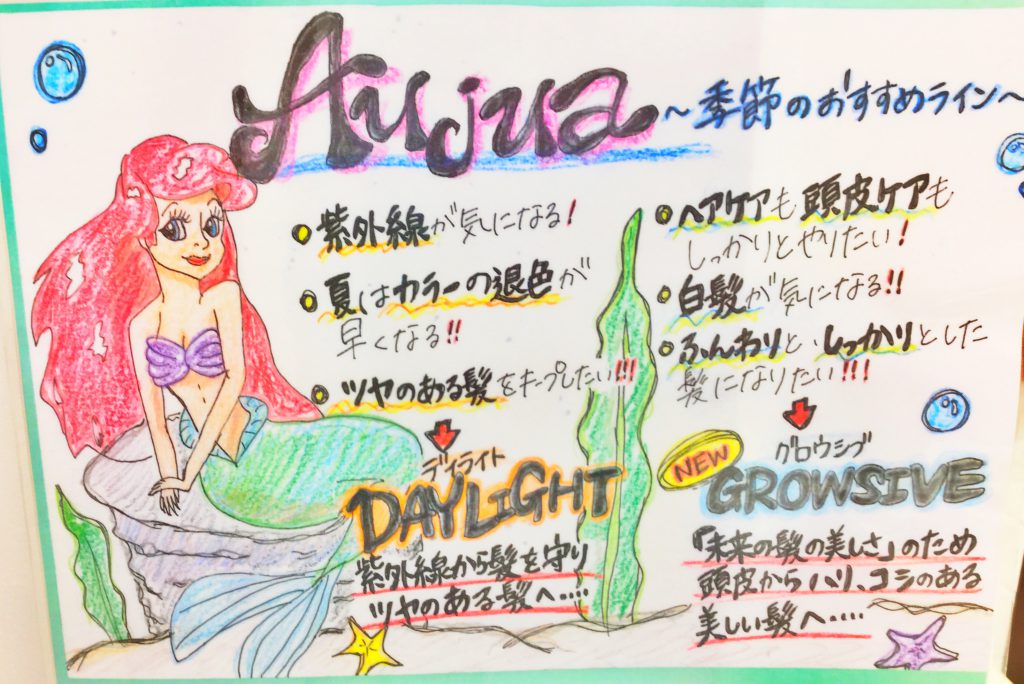 Aujua
～季節のおすすめライン～
紫外線が気になる!
夏はカラーの退色が
早くなる!!
ツヤのある髪をキープしたい!!!
デイライト
DAYLIGHT
紫外線から髪を守り
ツヤのある髪へ・・・・・
ヘアケアも頭皮ケアも
しっかりとやりたい!
白髪が気になる!!
ふんわりと、しっかりとした
髪になりたい!!!
NEW
グロウシブ
GROWSIVE
「未来の髪の美しさ」のため
頭皮からハリ、コシのある
美しい髪へ・・・・・